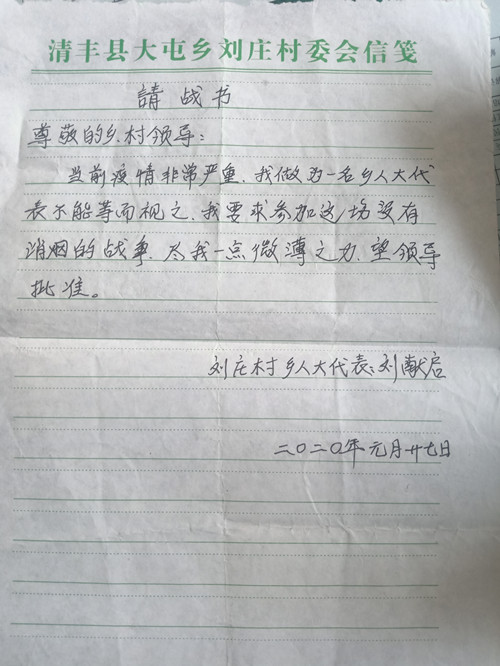 清丰县大屯乡刘庄村委会信笺
請战书
尊敬的乡.村领导：
当前疫情非常严重.我做为一名乡人大代
表不能等而视之.我要求参加这场没有
消烟的战争.尽我一点微薄之力.望领导
批准。
刘庄村乡人大代表：刘献启
二〇二〇年元月廿七日